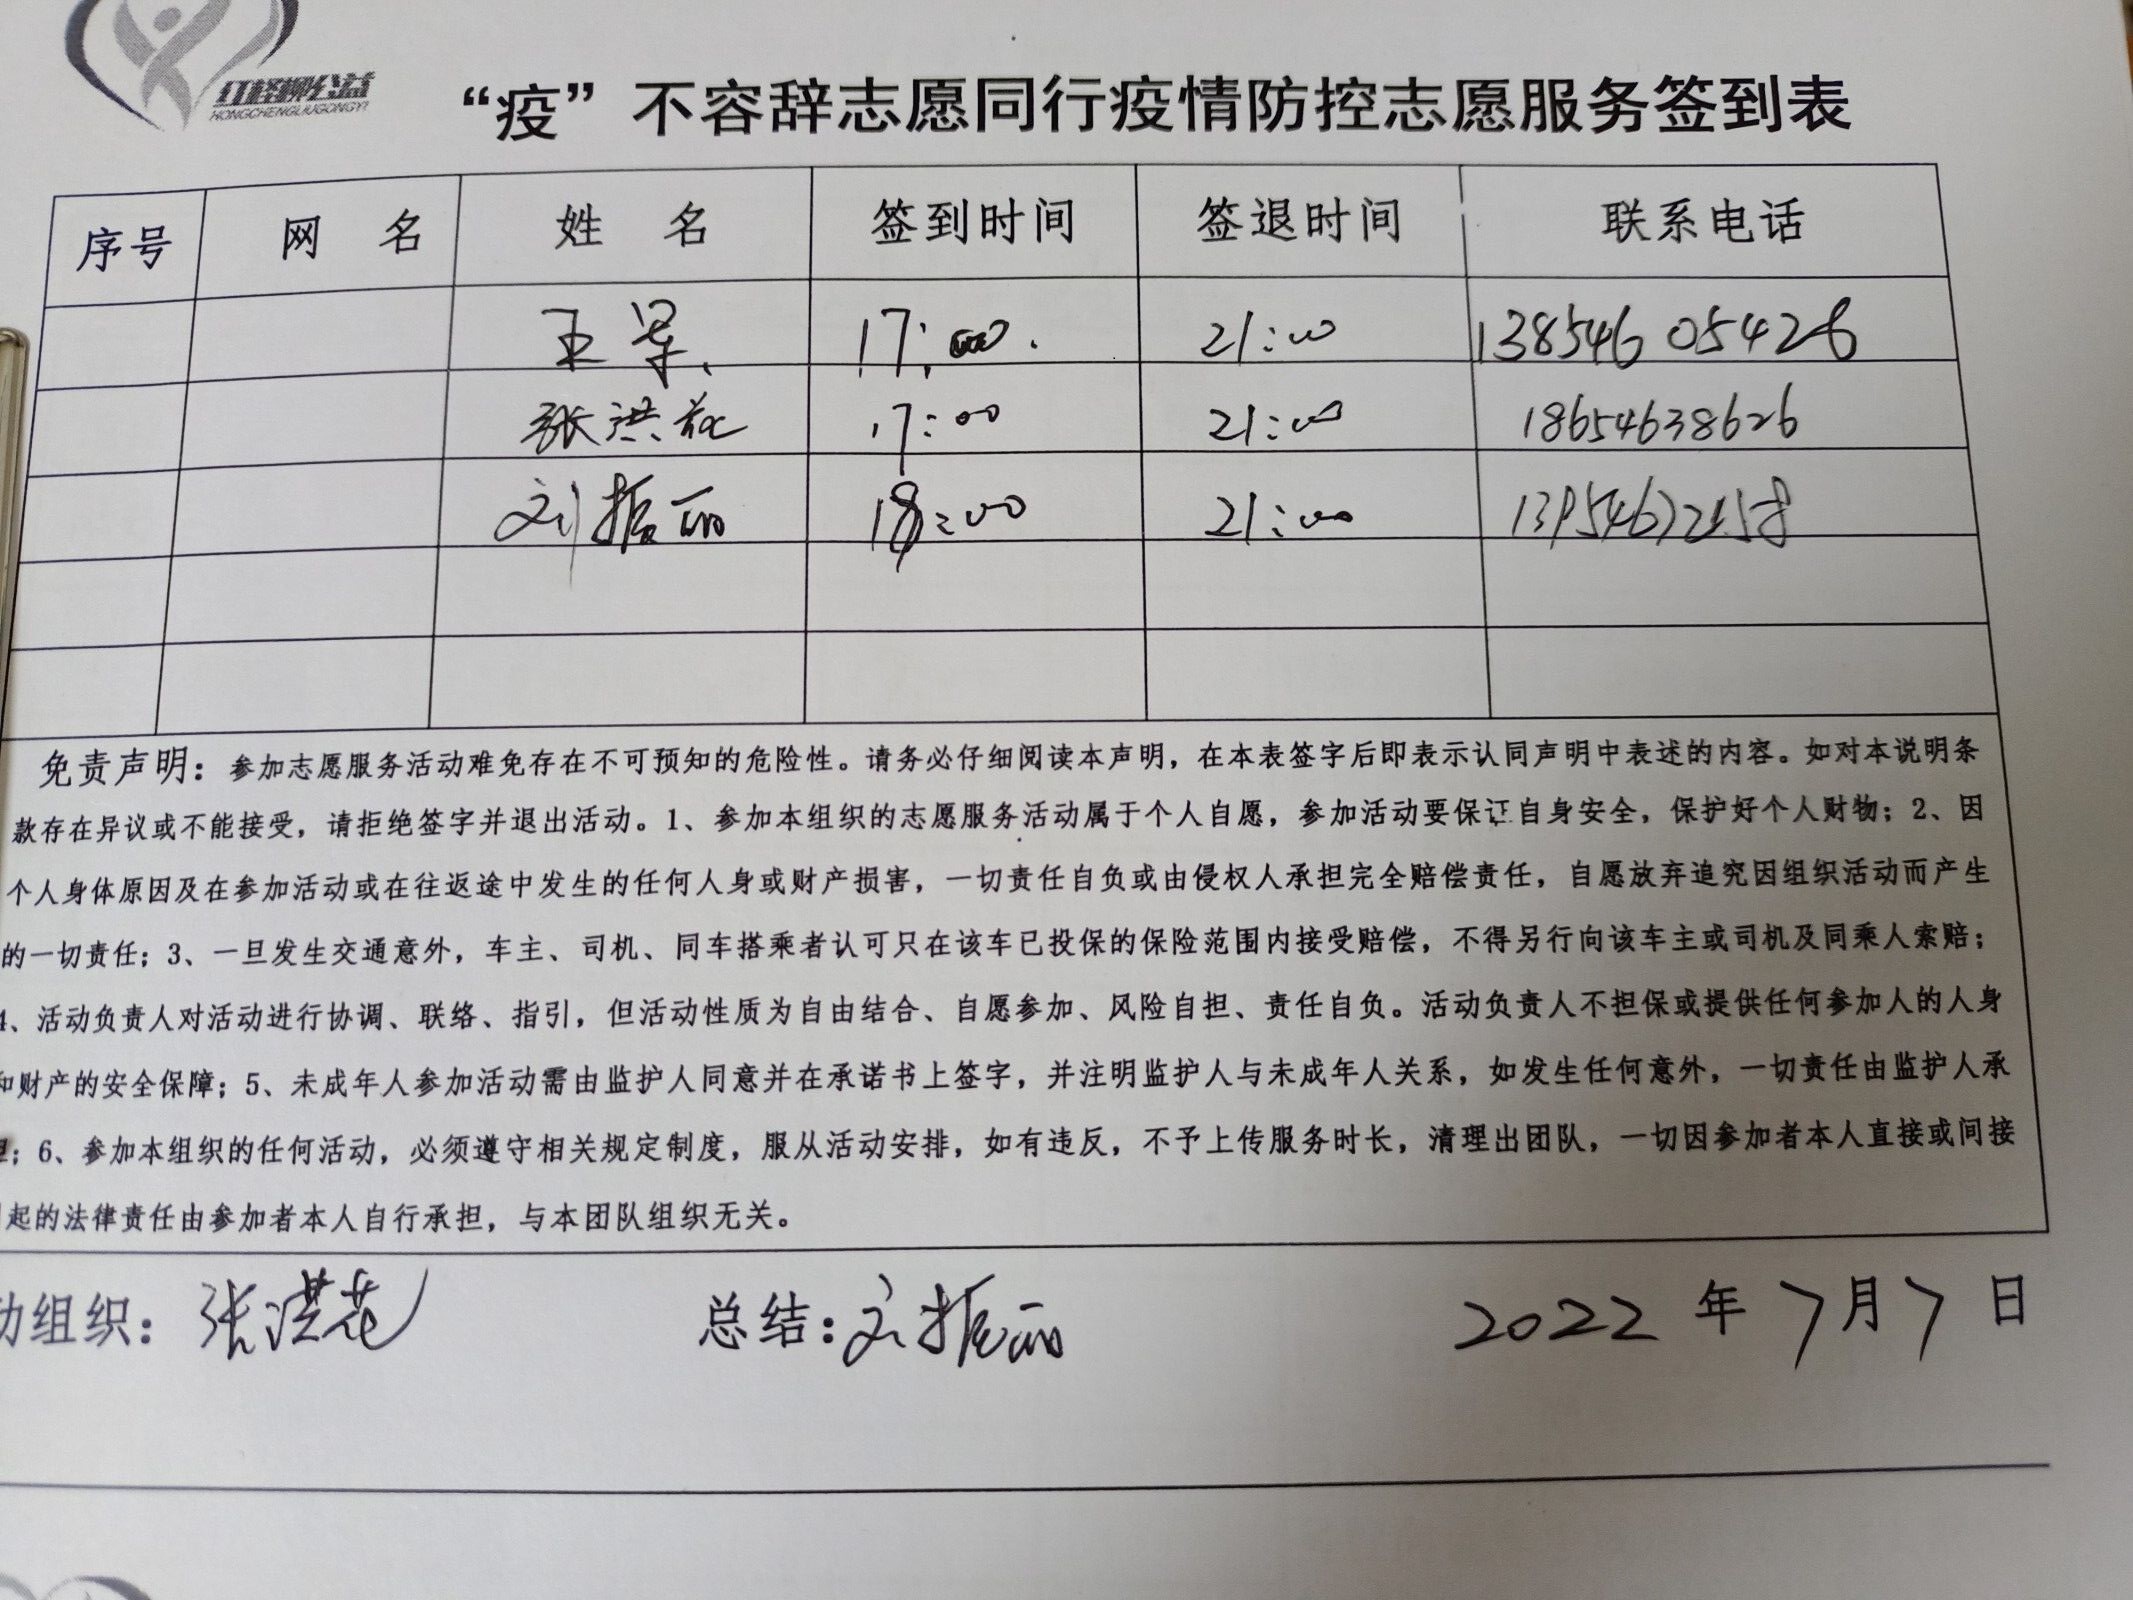 红柽柳公益
HONGCHENGLIUGONGYI
“疫”不容辞志愿同行疫情防控志愿服务签到表
序号 网 名 姓 名 签到时间 签退时间 联系电话
王 17:00 21:00 13854605426
张洪花 17:00 21:00 18654638626
刘振丽 18:00 21:00
免责声明：参加志愿服务活动难免存在不可预知的危险性。请务必仔细阅读本声明，在本表签字后即表示认同声明中表述的内容。如对本说明条
款存在异议或不能接受，请拒绝签字并退出活动。1、参加本组织的志愿服务活动属于个人自愿，参加活动要保证自身安全，保护好个人财物；2、因
个人身体原因及在参加活动或在往返途中发生的任何人身或财产损害，一切责任自负或由侵权人承担完全赔偿责任，自愿放弃追究因组织活动而产生
的一切责任；3、一旦发生交通意外，车主、司机、同车搭乘者认可只在该车已投保的保险范围内接受赔偿，不得另行向该车主或司机及同乘人索赔；
4、活动负责人对活动进行协调、联络、指引，但活动性质为自由结合、自愿参加、风险自担、责任自负。活动负责人不担保或提供任何参加人的人身
和财产的安全保障；5、未成年人参加活动需由监护人同意并在承诺书上签字，并注明监护人与未成年人关系，如发生任何意外，一切责任由监护人承
；6、参加本组织的任何活动，必须遵守相关规定制度，服从活动安排，如有违反，不予上传服务时长，清理出团队，一切因参加者本人直接或间接
起的法律责任由参加者本人自行承担，与本团队组织无关。
动组织：张洪花 总结：刘振丽 2022 年 7月 7 日